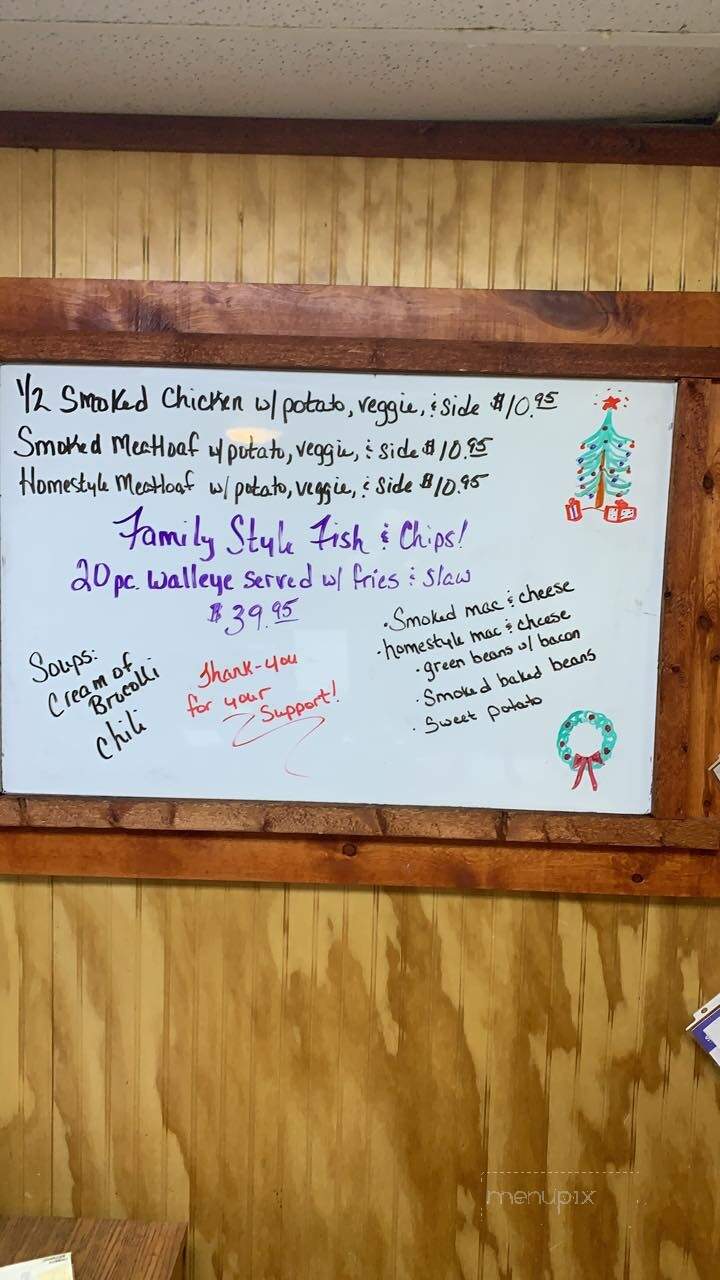 1/2 Smoked Chicken w/ potato, veggie, & side $10.95
Smoked Meatloaf w/ potato, veggie, & side $10.95
Homestyle Meatloaf w/ potato, veggie, & side $10.95
Family Style Fish & Chips!
20pc. Walleye served w/ fries & slaw
$39.95
Soups:
Cream of
Brocolli
Chili
Thank-you
for your
Support!
• Smoked mac & cheese
• homestyle mac & cheese
• green beans w/ bacon
• Smoked baked beans
• Sweet potato
menupix